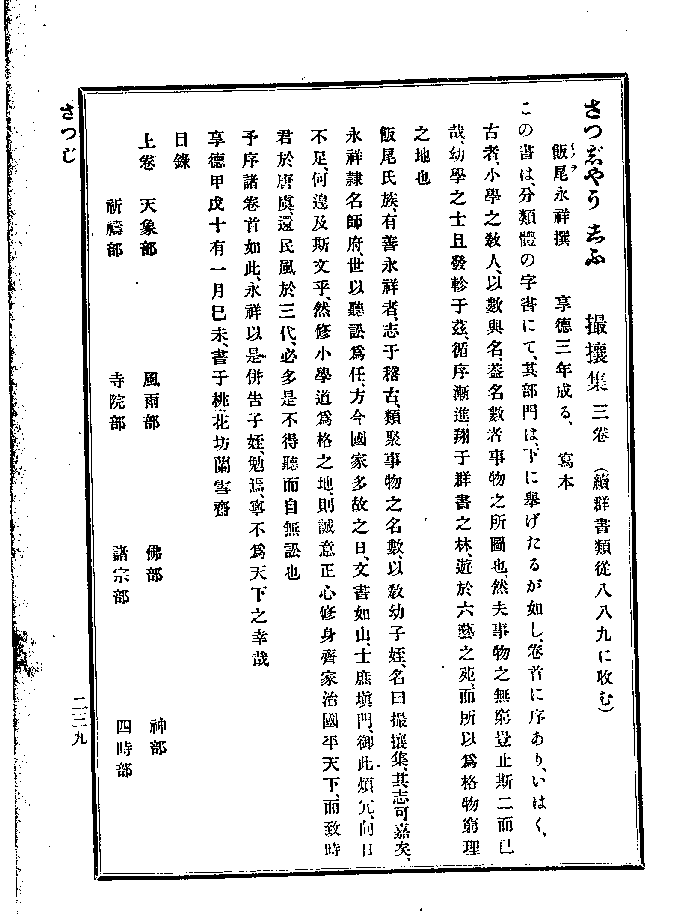 さつじやう志ふ 撮攘集 三卷 (續群書類從八八九に收む)
飯尾永祥撰 享德三年成る、 寫本
この書は、分類體の字書にて、其部門は、下に擧げたるが如し、卷首に序あり、いはく、
古者、小學之敎人、以數與名、蓋名數者事物之所圖也、然夫事物之無窮、豈止斯二而已
哉、幼學之士且發軫于茲、循序漸進、翔于群書之林、遊於六藝之苑、而所以爲格物窮理
之地也
飯尾氏族、有善永祥者、志于稽古、類聚事物之名數、以敎幼子姪、名曰撮攘集、其志可嘉矣、
永祥隷名師府、世以聽訟爲任、方今國家多故之日、文書如山、士庶塡門、御此煩冗、向日
不足、何遑及斯文乎、然修小學道爲格之地、則誠意正心修身齊家治國平天下、而致時
君於唐虞、還民風於三代、必多是不得聽而自無訟也
予序諸卷首如此、永祥以是併告子姪、勉焉、寧不爲天下之幸哉
享德甲戌十有一月巳未、書于桃花坊蘭雪齋
目錄
上卷 天象部 風雨部 佛部 神部
祈禱部 寺院部 諸宗部 四時部
さつじ 二三九